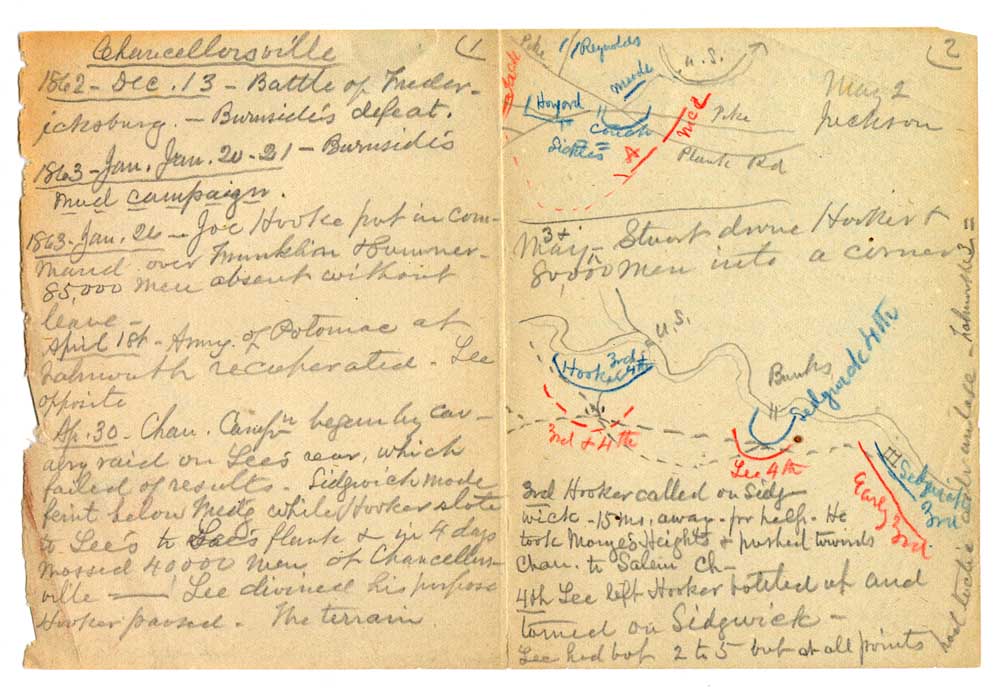 Chancellorsville
(1
1862 - Dec. 13 - Battle of Freder-
icksburg. - Burnside's defeat.
1863 - Jan. Jan. 20-21 - Burnside's
mud campaign.
1863 - Jan. 26 - Joe Hooke put in com-
mand over Franklin & Sumner -
85,000 men absent without
leave -
April 1st - Army of Potomac at
Falmouth recuperated. Lee
opposite
Ap. 30 - Chan. Campn began by cav-
alry raid on Lee's rear, which
failed of results. Sidgwick made
feint below while Hooker stole
to Lee's to Lee's flank & in 4 days
massed 40000 men at Chancellors-
ville — Lee divined his purpose
Hooker paused. The terrain
(2
Pike
Reynolds
U.S.
Meade
Howard
+
Sickles
Couch
Pike
Plank Rd
May 2
Jackson
May 3d - Stuart drove Hooker &
80,000 men into a corner
U.S.
Hooker 3rd & 4th
3rd & 4th
Banks
Sedgwick 4th
Lee 4th
Sedgwick 3rd
Early 3rd
3rd Hooker called on Sidg-
wick - 15 ms. away - for help. He
took Marye's Heights & pushed towards
Chan. to Salem Ch -
4th Lee left Hooker bottled up and
turned on Sidgwick -
Lee had but 2 to 5 but at all points
had tactic